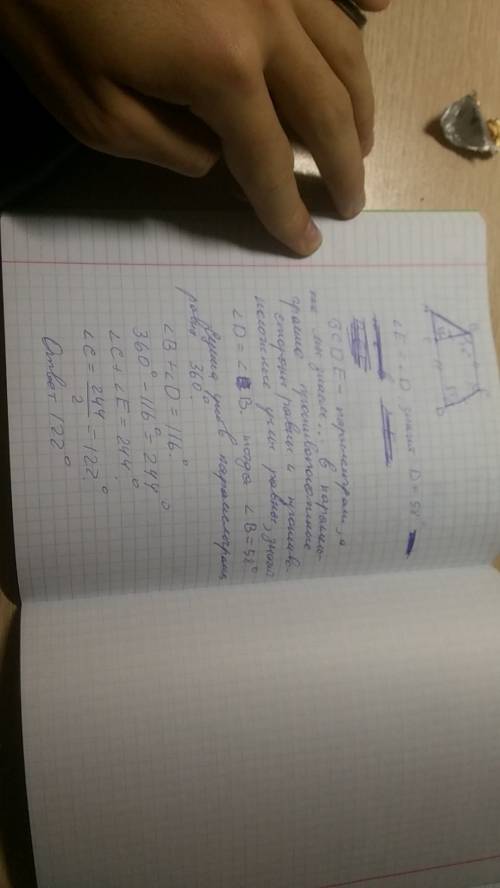 ∠E = D значит D = 58°
BCDE - параллелограм, а
мы знаем в паралле-
грамме противоположные
стороны равны и против
положные углы равны, значит
∠D = ∠B. тогда ∠B = 58°
Сумма углов в параллелограмм
равна 360°
∠B + ∠D = 116°
360° - 116° = 244°
∠C + ∠E = 244°
∠C = 244/2 = 122°
Ответ 122°